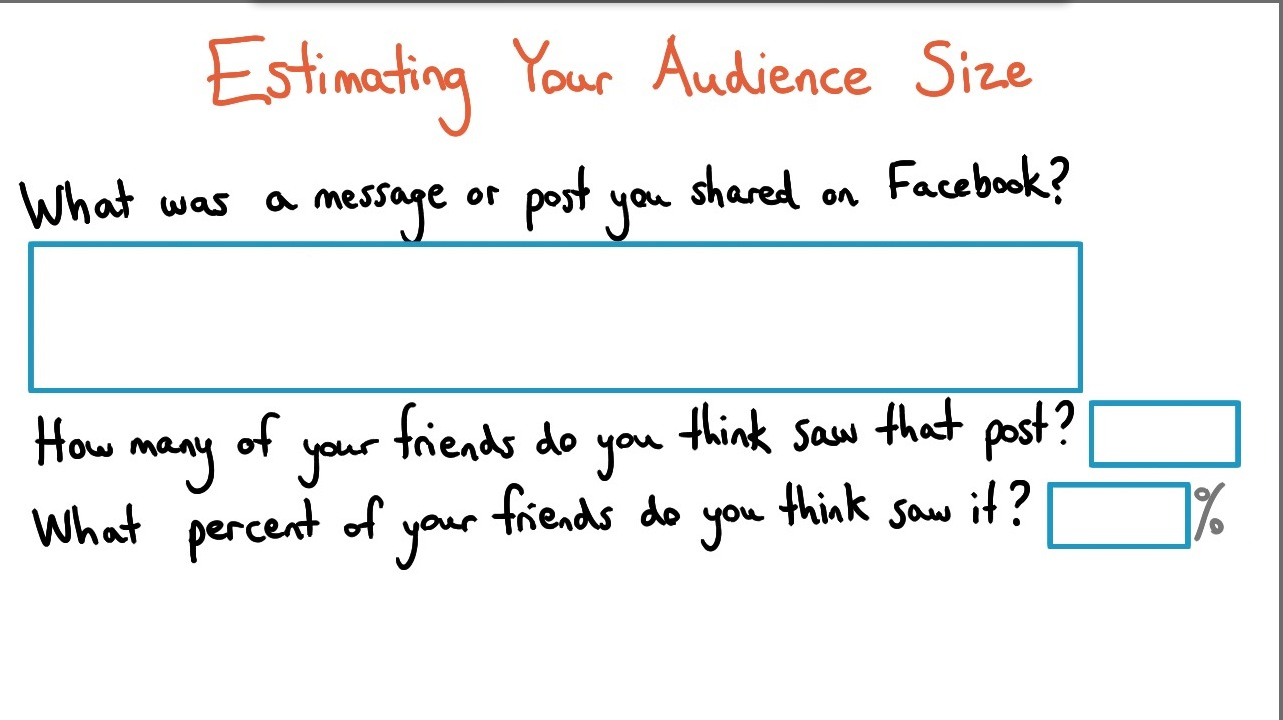 Estimating Your Audience Size
What was a message or post you shared on Facebook?
How many of your friends do you think saw that post?
What percent of your friends do you think saw it? %